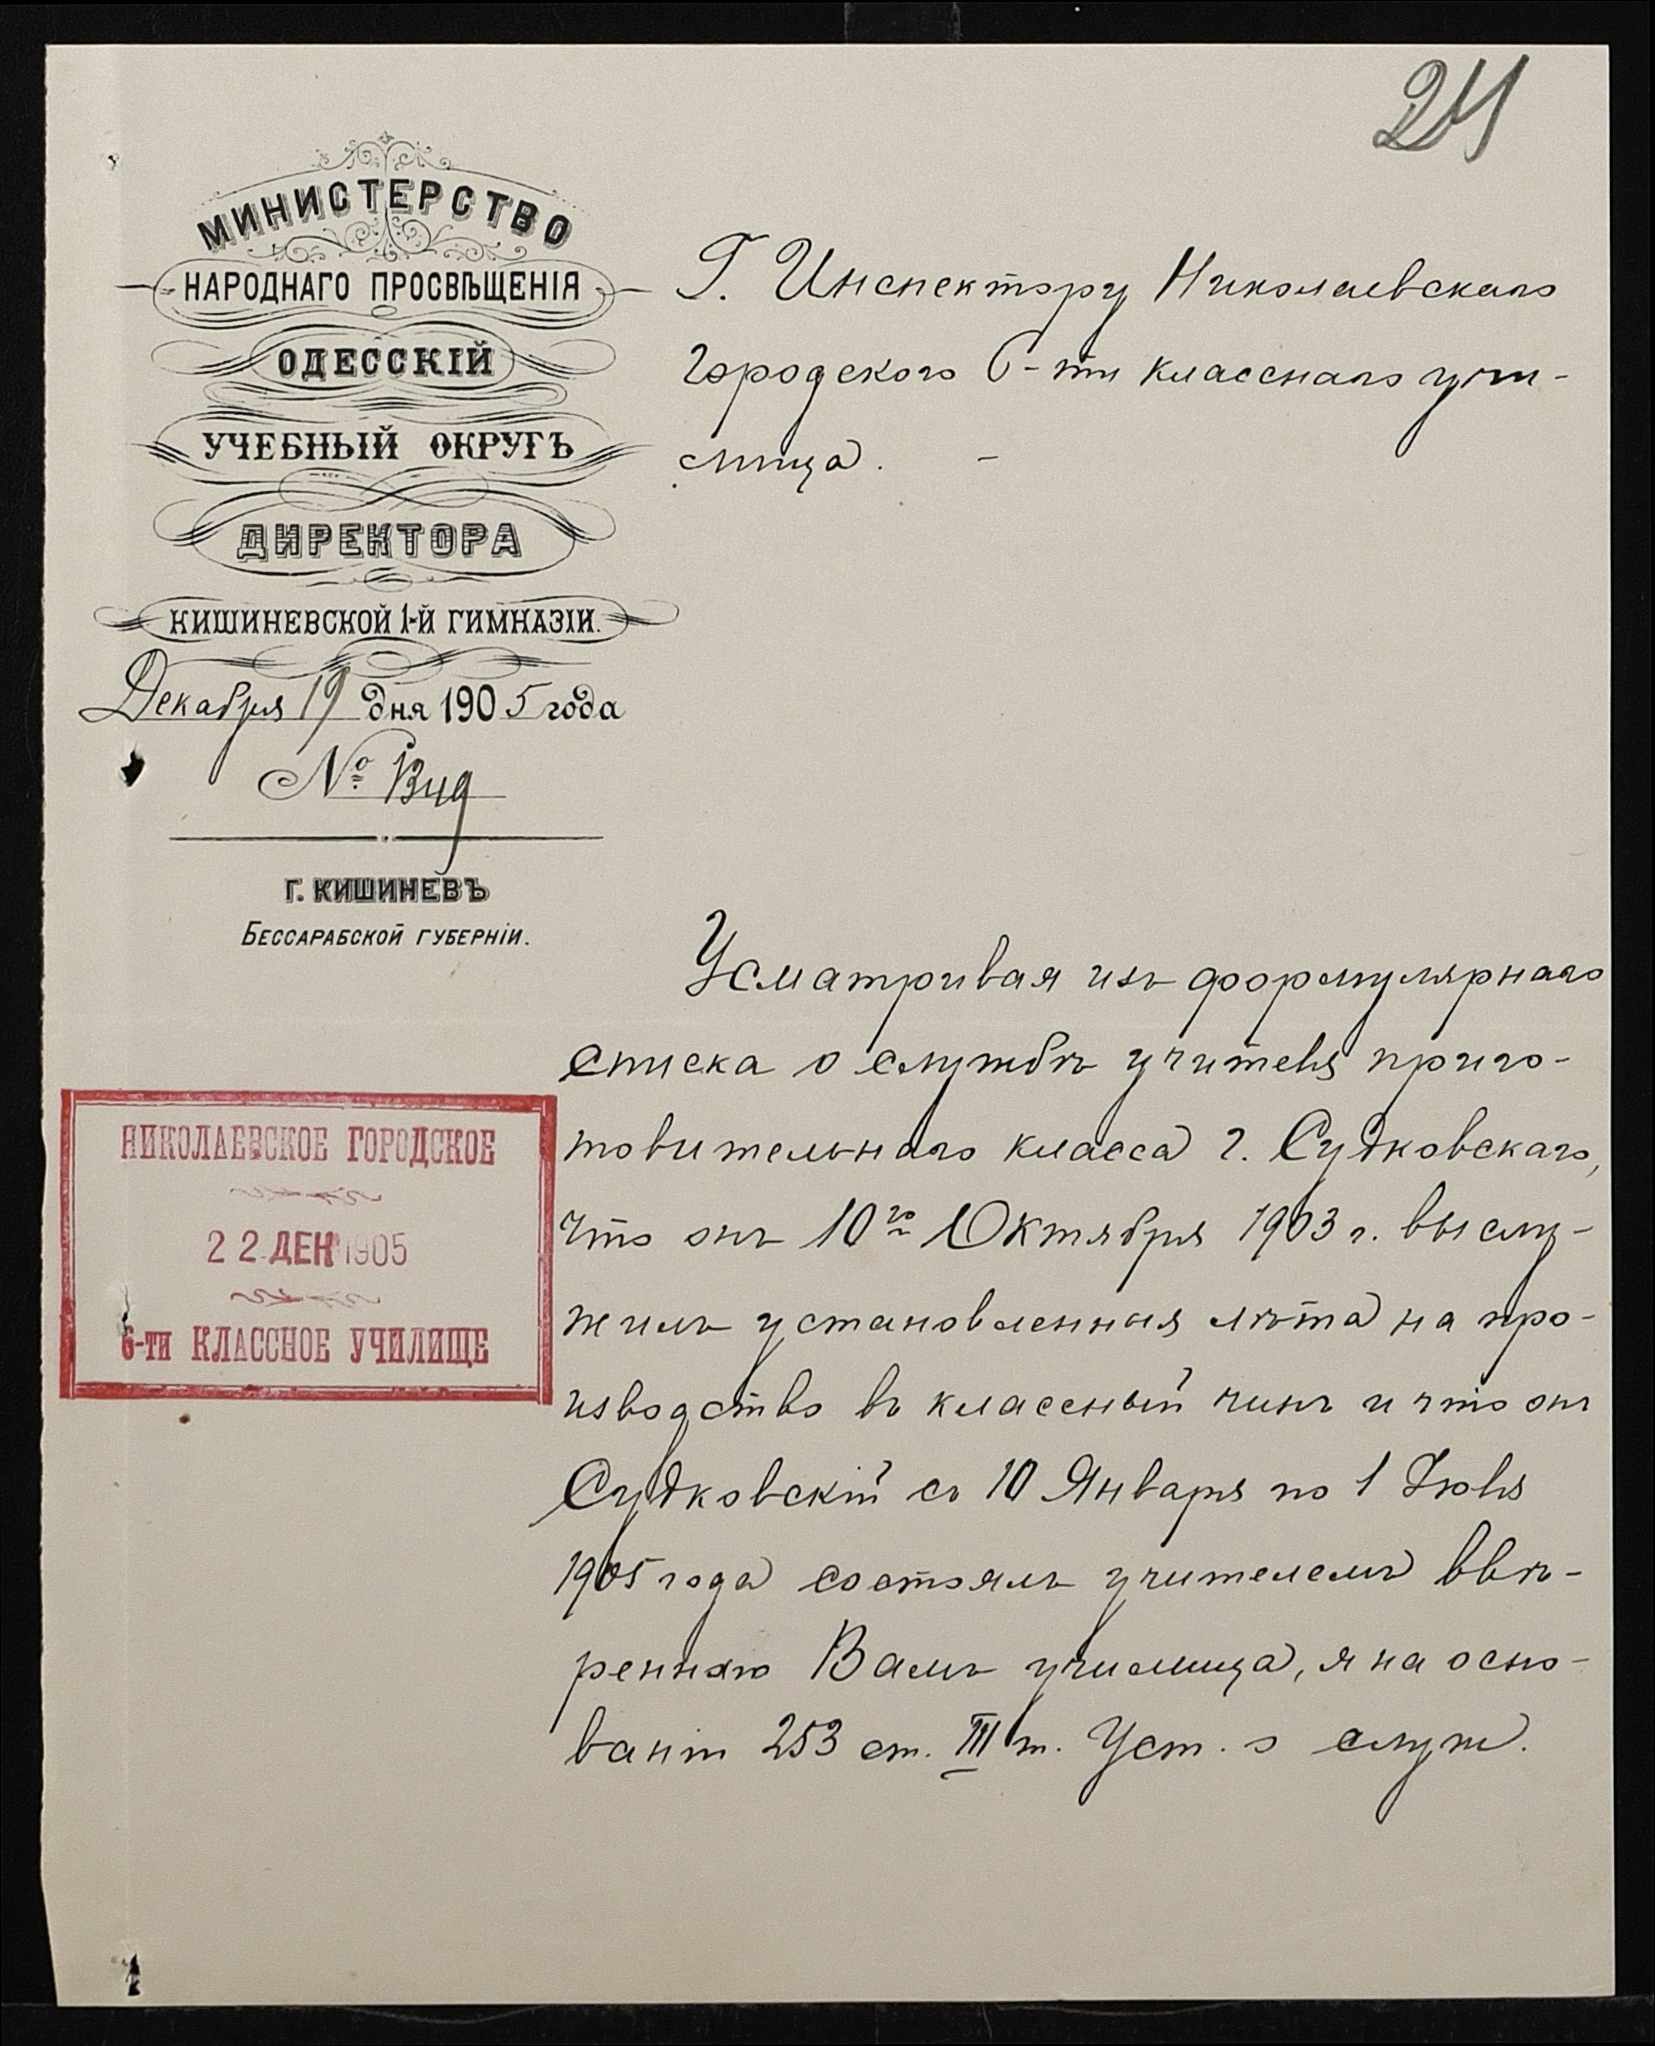 24
МИНИСТЕРСТВО
НАРОДНАГО ПРОСВѢЩЕНІЯ
ОДЕССКІЙ
УЧЕБНЫЙ ОКРУГЪ
ДИРЕКТОРА
КИШИНЕВСКОЙ 1-Й ГИМНАЗІИ.
Декабря 19 дня 1905 года
№
Г. КИШИНЕВЪ
БЕССАРАБСКОЙ ГУБЕРНІИ.
Г. Инспектору Николаевскаго
Городского 6-ти класснаго учи-
лища. -
НИКОЛАЕВСКОЕ ГОРОДСКОЕ
22 ДЕК 1905
6-ТИ КЛАССНОЕ УЧИЛИЩЕ
Усматривая изъ формулярнаго
списка о службѣ учителя приго-
товительнаго класса г. Судковскаго,
что онъ 10го Октября 1903 г. выслу-
жилъ установленныя лѣта на про-
изводство въ классный чинъ и что онъ
Судковскій съ 10 Января по 1 Іюля
1905 года состоялъ учителемъ ввѣ-
реннаго Вамъ училища, я на осно-
ваніи 253 ст. III т. Уст. о служ.